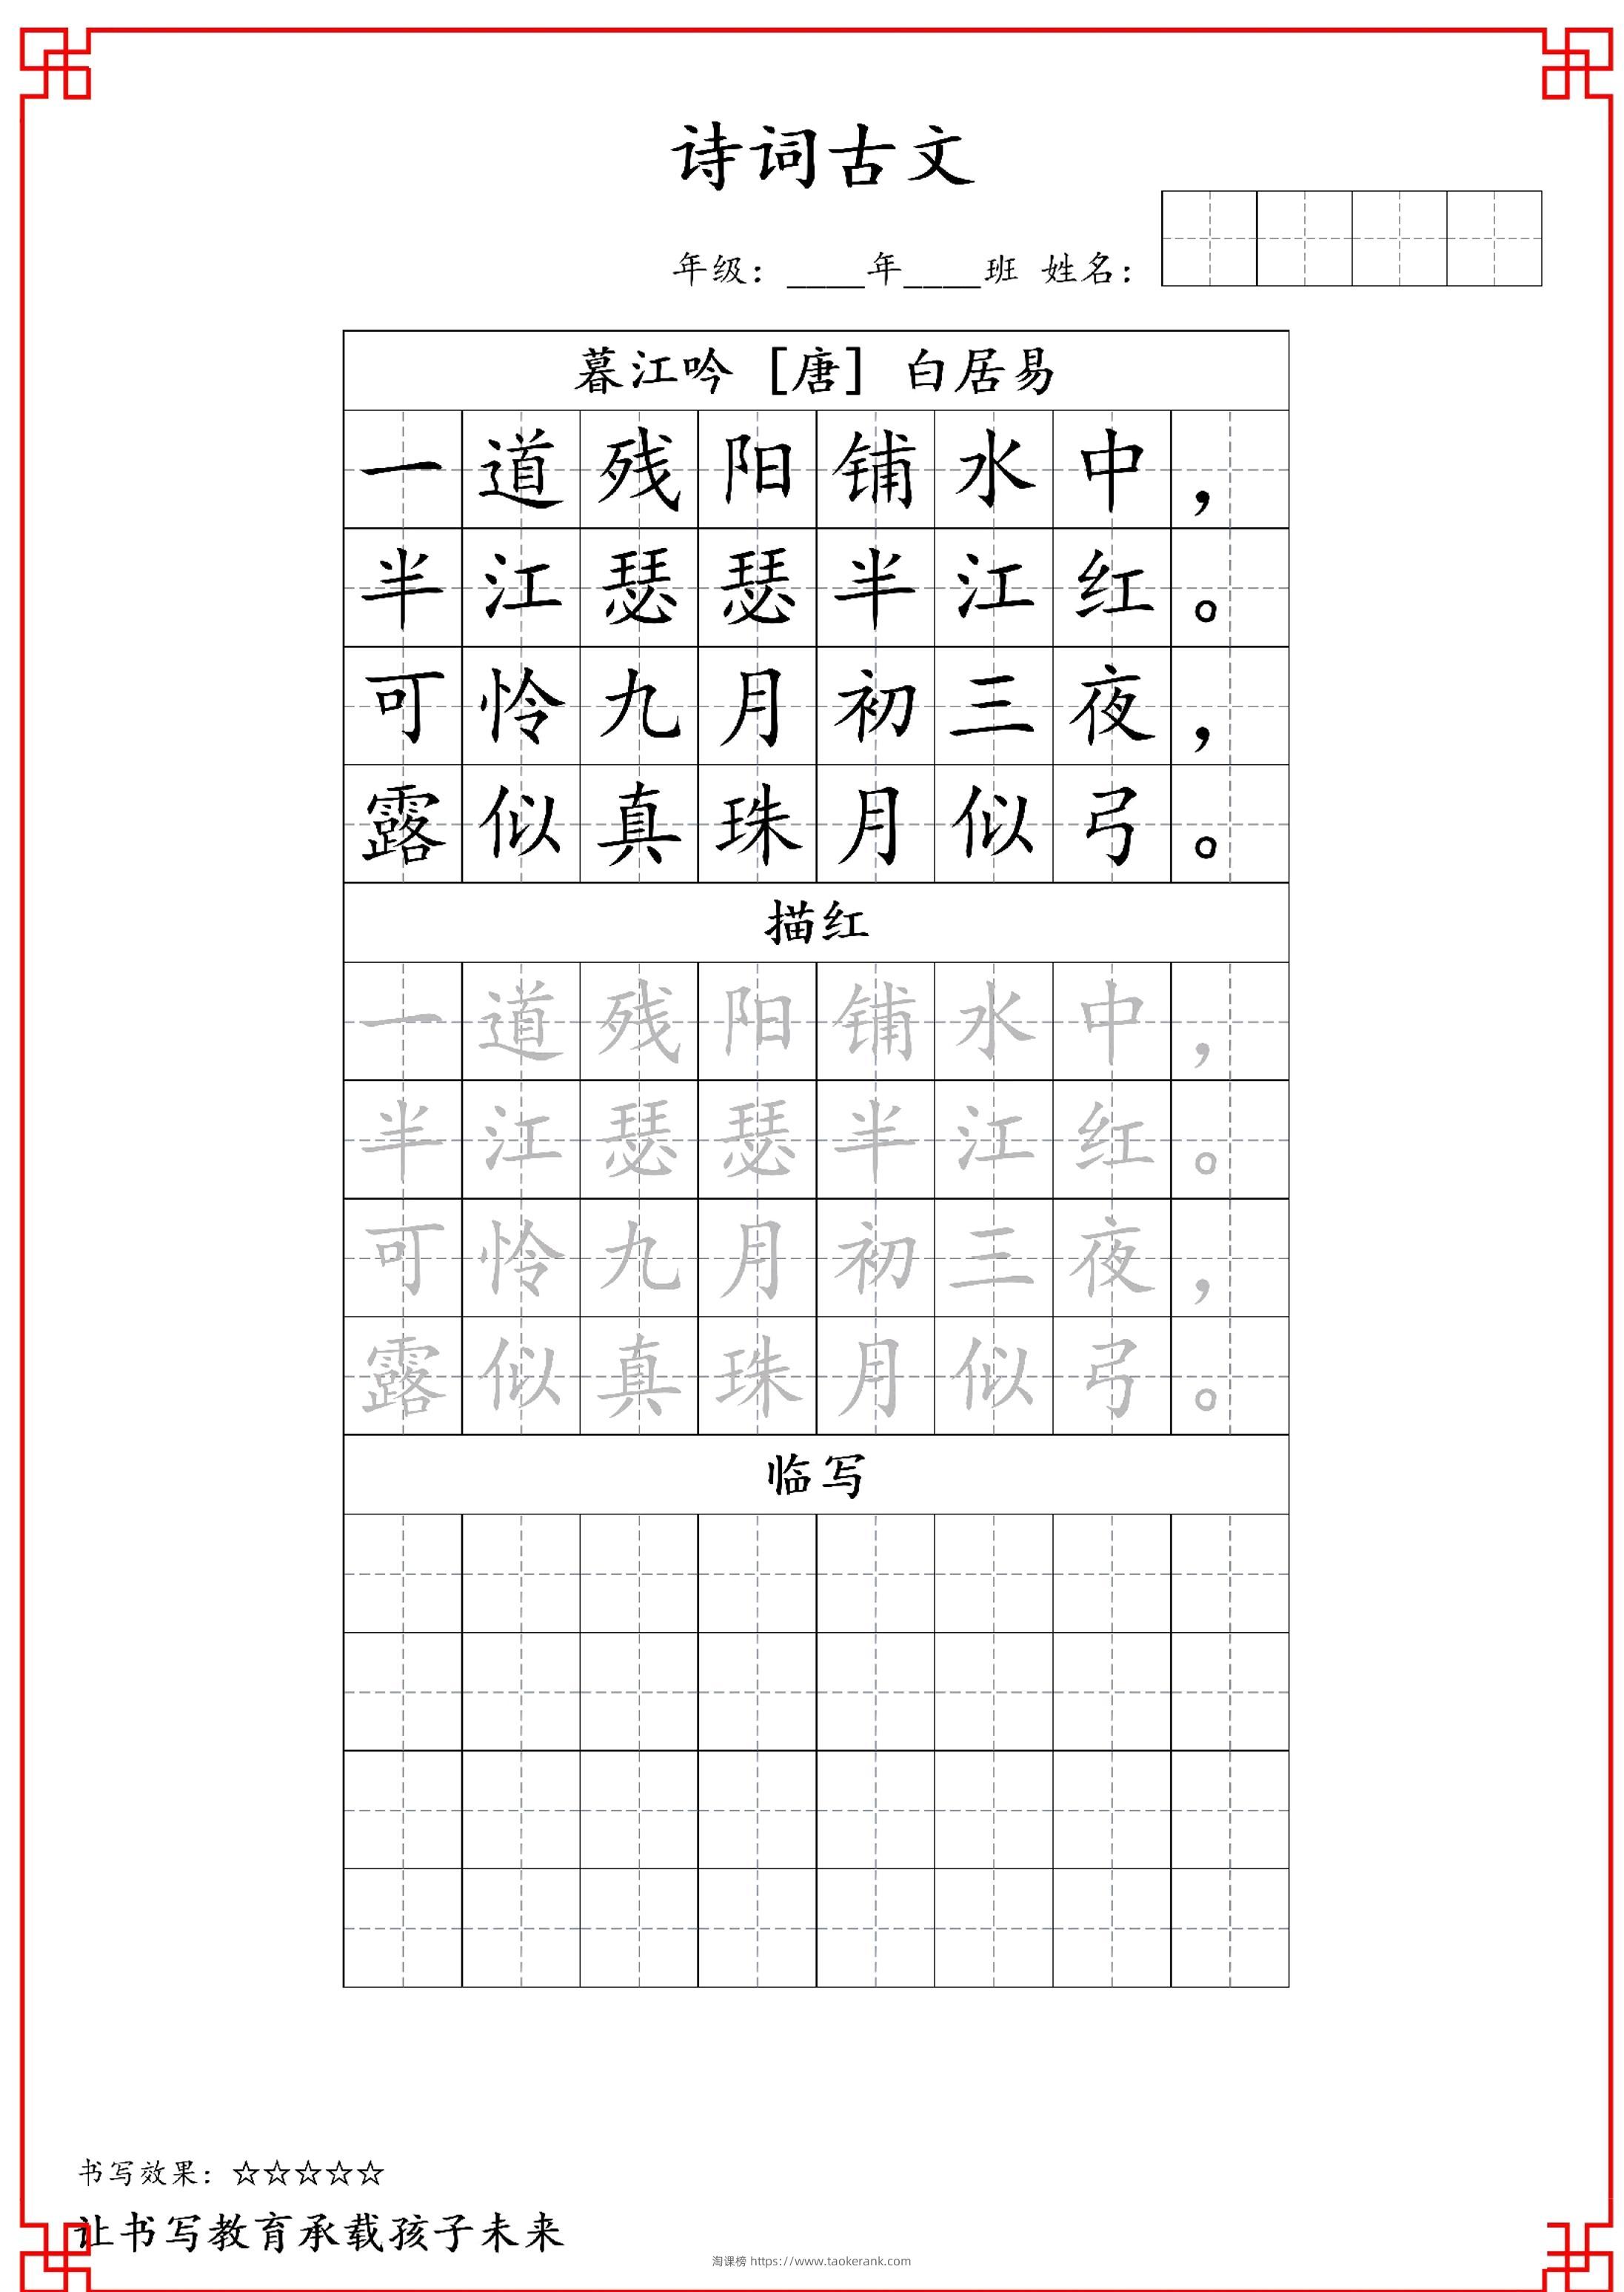 诗词古文
年级：____年____班 姓名：
暮江吟 [唐] 白居易
一道残阳铺水中，
半江瑟瑟半江红。
可怜九月初三夜，
露似真珠月似弓。
描红
一道残阳铺水中，
半江瑟瑟半江红。
可怜九月初三夜，
露似真珠月似弓。
临写
书写效果：☆☆☆☆☆
让书写教育承载孩子未来
淘课榜 https://www.taokerank.com